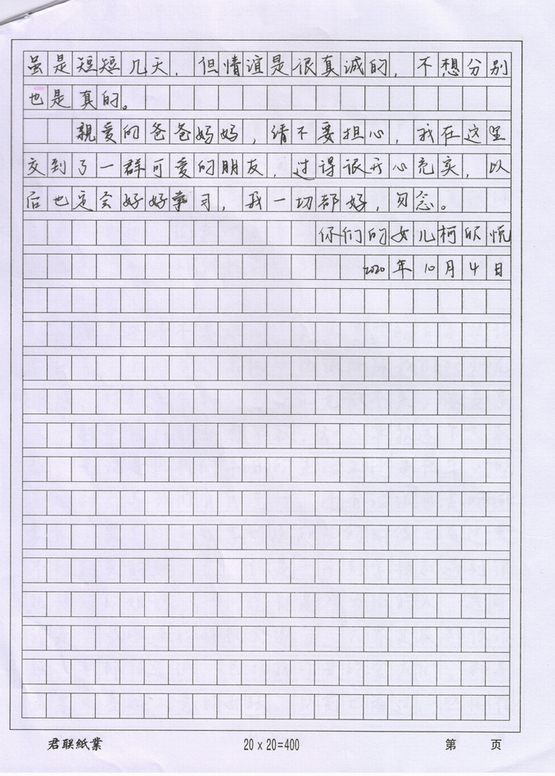 虽是短短几天，但情谊是很真诚的，不想分别
也是真的。
親爱的爸爸妈妈，请不要担心，我在这里
交到了一群可爱的朋友，过得很开心充实，以
后也定会好好学习，我一切都好，勿念。
你们的女儿柯 悦
2020年10月4日
君联纸业 20×20=400 第 页